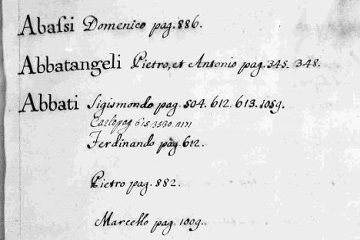 Abaſsi Domenico pag. 886.
Abbatangeli Pietro, et Antonio pag. 345. 348.
Abbati Sigismondo pag. 504. 612. 613. 1059.
Carlo pag
Ferdinando pag. 612.
Pietro pag. 882.
Marcello pag. 1009.